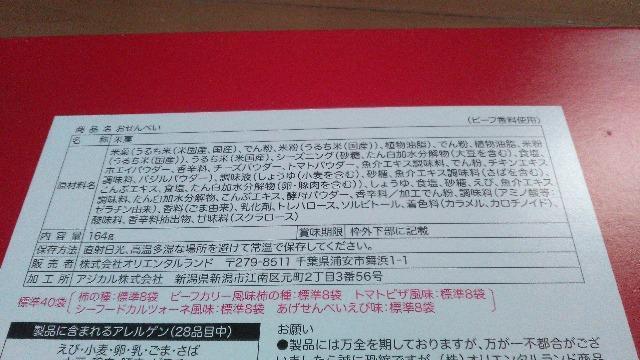 商品名 おせんべい (ビーフ香料使用)
名称 米菓
原材料名 米菓(うるち米(米国産、国産)、でん粉、米粉(うるち米(国産))、植物油脂)、でん粉、植物油脂、米粉
(うるち米(国産))、うるち米(国産)、シーズニング(砂糖、たん白加水分解物(大豆を含む)、食塩、
ホエイパウダー、香辛料、チーズパウダー、トマトパウダー、魚介エキス調味料、でん粉、チキンエキス
調味料、バジルパウダー)、調味液(しょうゆ(小麦を含む)、砂糖、魚介エキス調味料(さばを含む)、
こんぶエキス、食塩、たん白加水分解物(卵・豚肉を含む))、しょうゆ、食塩、砂糖、えび、魚介エキス
調味料、たん白加水分解物、こんぶエキス、酵母パウダー、香辛料/加工でん粉、調味料(アミノ酸等・
ゼラチン由来)、香料(ごま由来)、乳化剤、トレハロース、ソルビトール、着色料(カラメル、カロチノイド)、
酸味料、香辛料抽出物、甘味料(スクラロース)
内容量 164g 賞味期限 枠外下部に記載
保存方法 直射日光、高温多湿な場所を避けて常温で保存してください。
販売者 株式会社オリエンタルランド 〒279-8511 千葉県浦安市舞浜1-1
加工所 アジカル株式会社 新潟県新潟市江南区元町2丁目3番56号
標準40袋 柿の種:標準8袋 ビーフカリー風味柿の種:標準8袋 トマトピザ風味:標準8袋
シーフードカルツォーネ風味:標準8袋 あげせんべいえび味:標準8袋
製品に含まれるアレルゲン(28品目中)
えび・小麦・卵・乳・ごま・さば
お願い
●製品には万全を期しておりますが、万が一不都合がござ